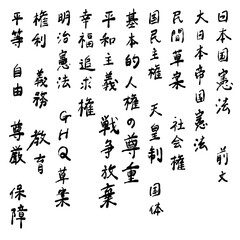 日本国憲法 前文
大日本帝国憲法
民間草案 社会権
国民主権 天皇制 国体
基本的人権の尊重
平和主義 戦争放棄
幸福追求権
明治憲法 GHQ草案
権利 義務 教育
平等 自由 尊厳 保障